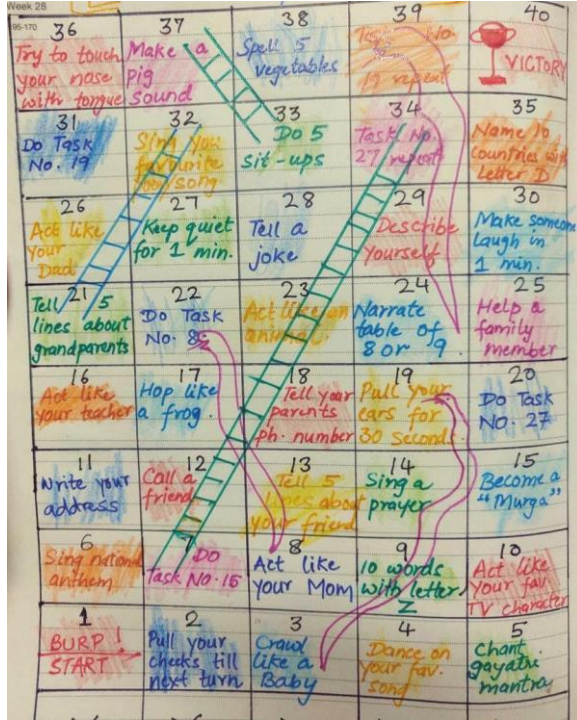 Week 28
95-170
36
Try to touch
your nose
with tongue
37
Make a
pig
sound
38
Spell 5
vegetables
39
Task No.
19 repeat
40
VICTORY
31
Do Task
No. 19
32
Sing you
favourite
song
33
Do 5
sit-ups
34
Task No.
27 repeat
35
Name 10
Countries with
letter D
26
Act like
your
Dad
27
Keep quiet
for 1 min.
28
Tell a
joke
29
Describe
yourself
30
Make someone
laugh in
1 min.
21
Tell 5
lines about
grandparents
22
Do Task
No. 8
23
Act like an
animal
24
Narrate
table of
8 or 9
25
Help a
family
member
16
Act like
your teacher
17
Hop like
a frog.
18
Tell your
parents
ph. number
19
Pull your
ears for
30 seconds
20
Do Task
NO. 27
11
Write your
address
12
Call a
friend
13
Tell 5
lines about
your friend
14
Sing a
prayer
15
Become a
"Murga"
6
Sing national
anthem
7
DO
Task NO. 16
8
Act like
your Mom
9
10 words
with letter
Z
10
Act like
your fav.
TV character
1
BURP!
START
2
Pull your
cheeks till
next turn
3
Crawl
like a
Baby
4
Dance on
your fav.
song
5
Chant
gayatri
mantra